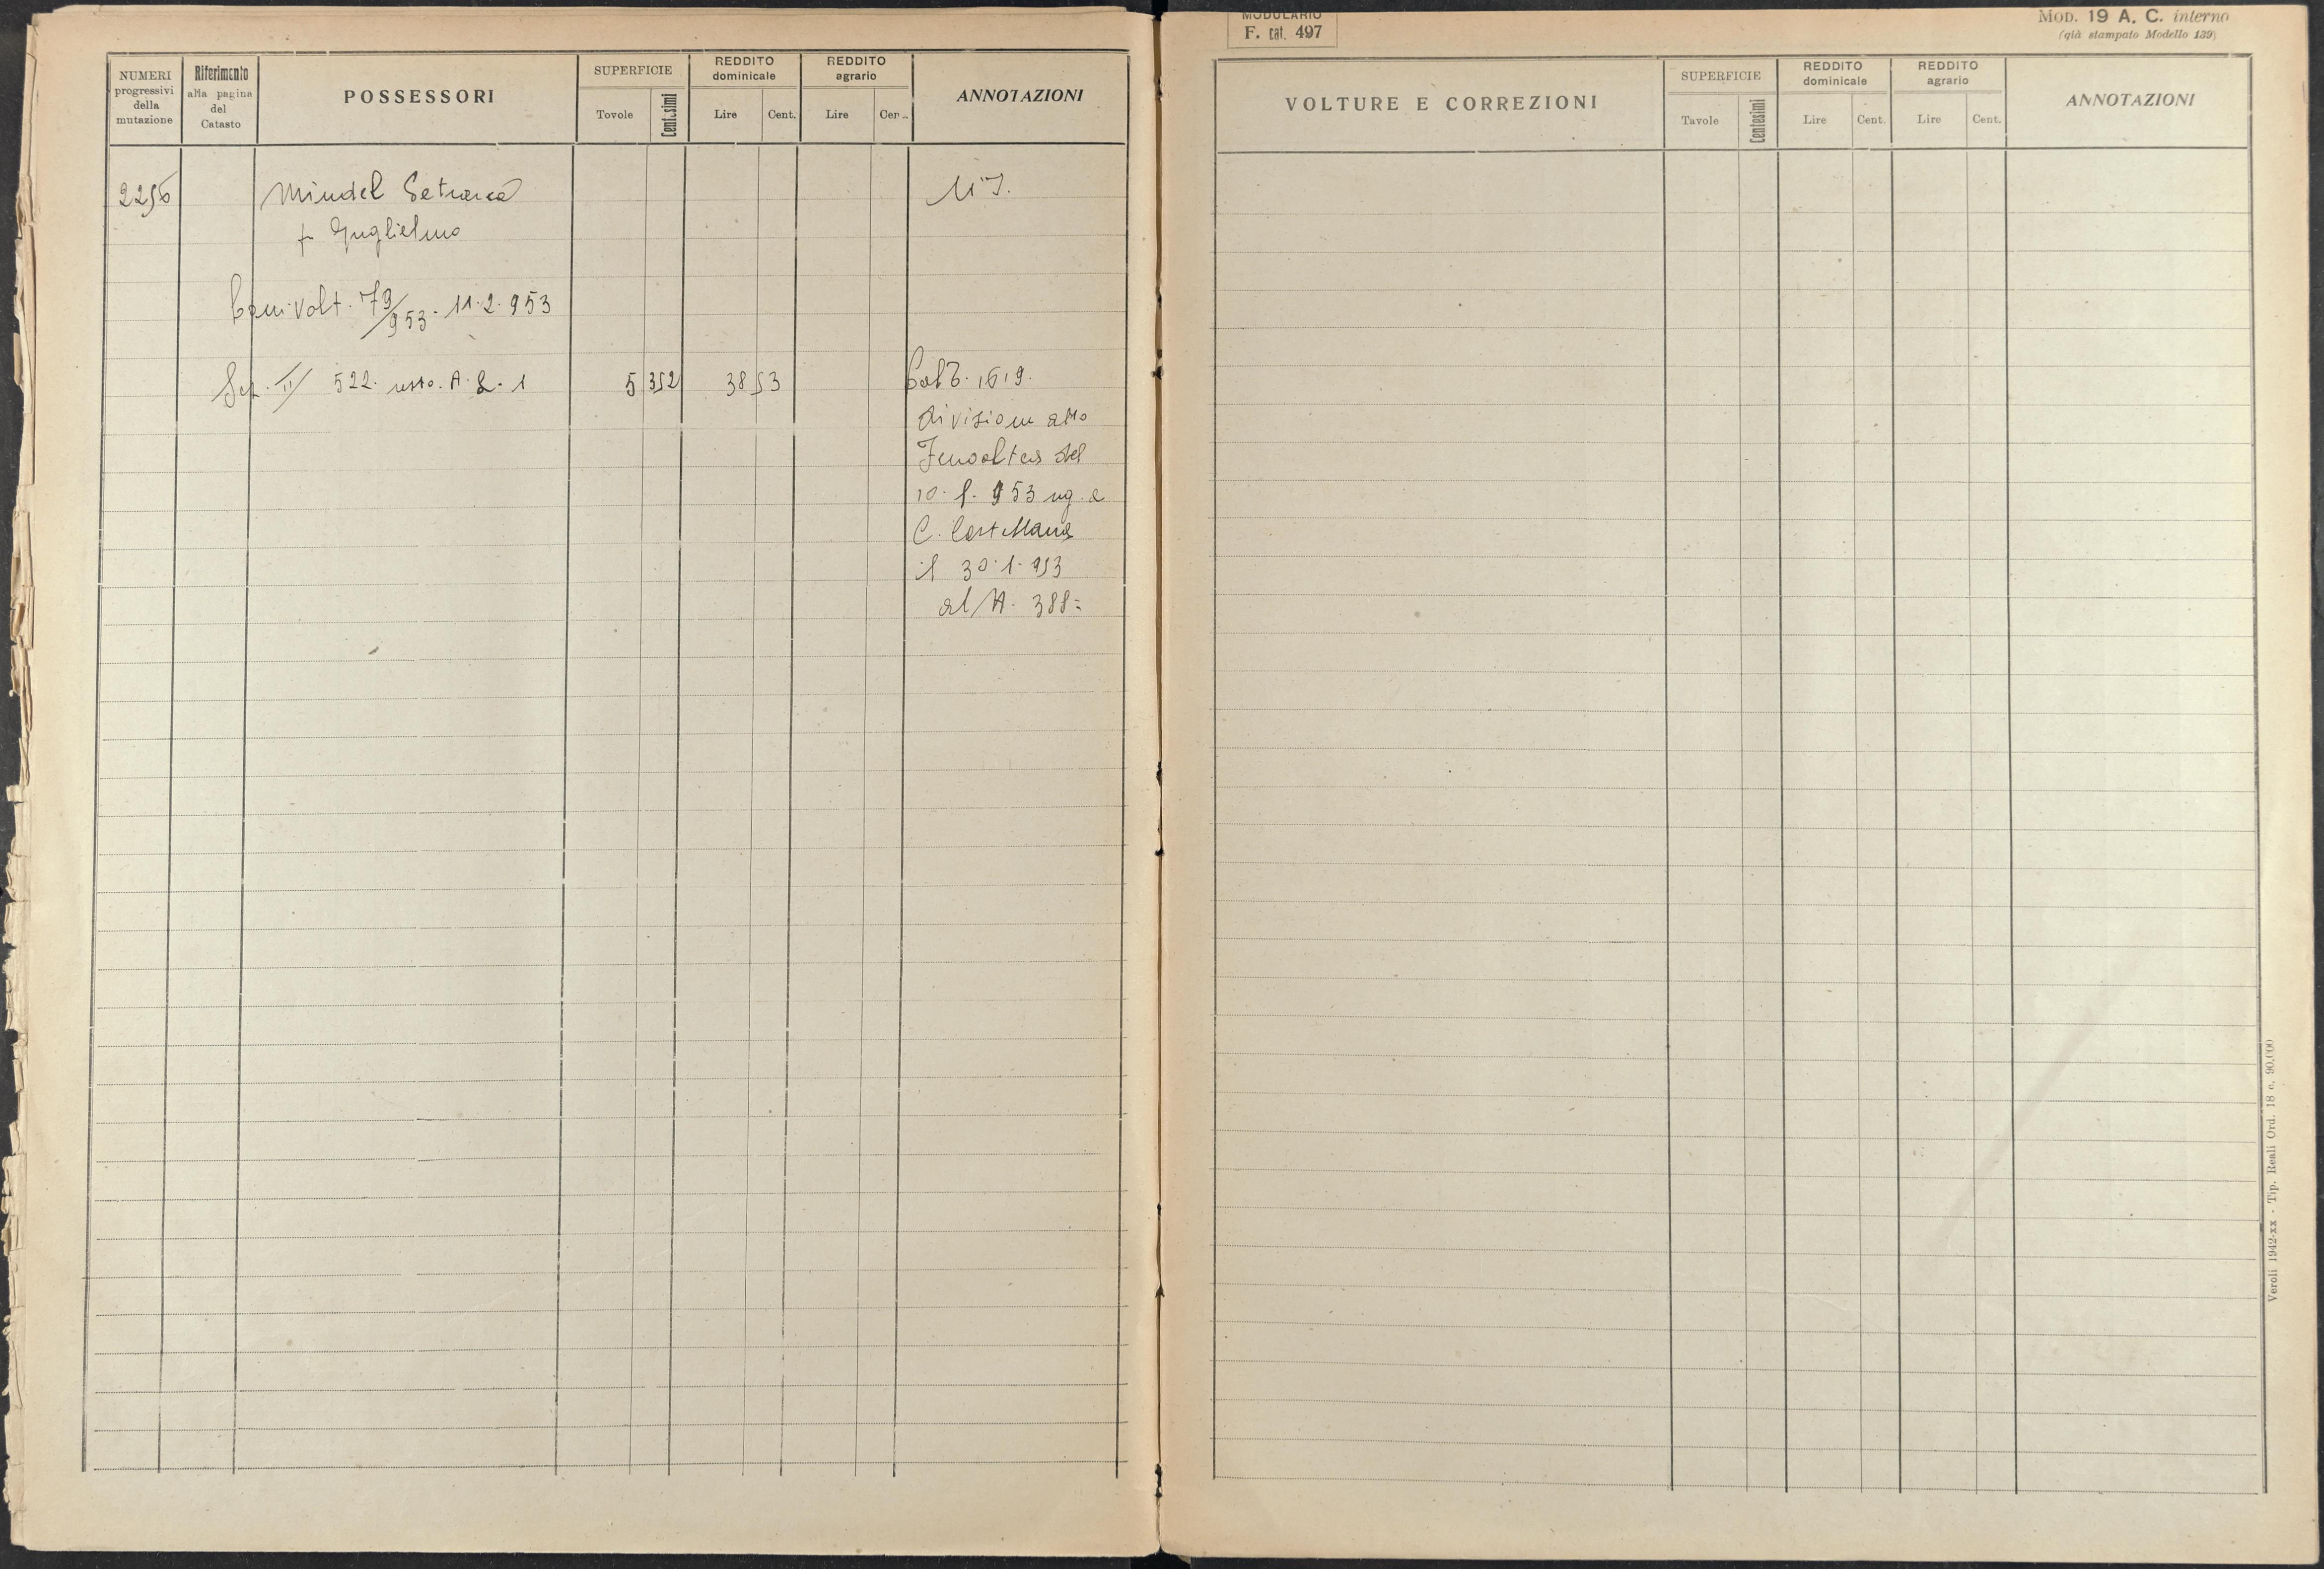 NUMERI
progressivi
della
mutazione
Riferimento
alla pagina
del
Catasto
POSSESSORI
SUPERFICIE
Tovole
Centesimi
REDDITO
dominicale
Lire
Cent.
REDDITO
agrario
Lire
Cen..
ANNOTAZIONI
2256
Mindel
fu Guglielmo
Volt. 79/953 - 11-2-953
Sez. II/ 522 resto. A. 2. 1
5 352
38 53
1619.
division atto
del
10. 1. 953 reg. a
C. Castellana
il 30.1.953
al N. 388=
MODULARIO
F. cat. 497
MOD. 19 A. C. interno
(già stampato Modello 139)
VOLTURE E CORREZIONI
SUPERFICIE
Tavole
Centesimi
REDDITO
dominicale
Lire
Cent.
REDDITO
agrario
Lire
Cent.
ANNOTAZIONI
Veroli 1942-xx - Tip. Reali Ord. 18 c. 90.000